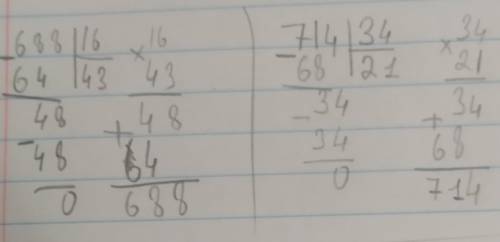 -688 | 16
64 | 43
48
-48
0
× 16
43
+ 48
64
688
-714 | 34
68 | 21
-34
34
0
× 34
21
+ 34
68
714